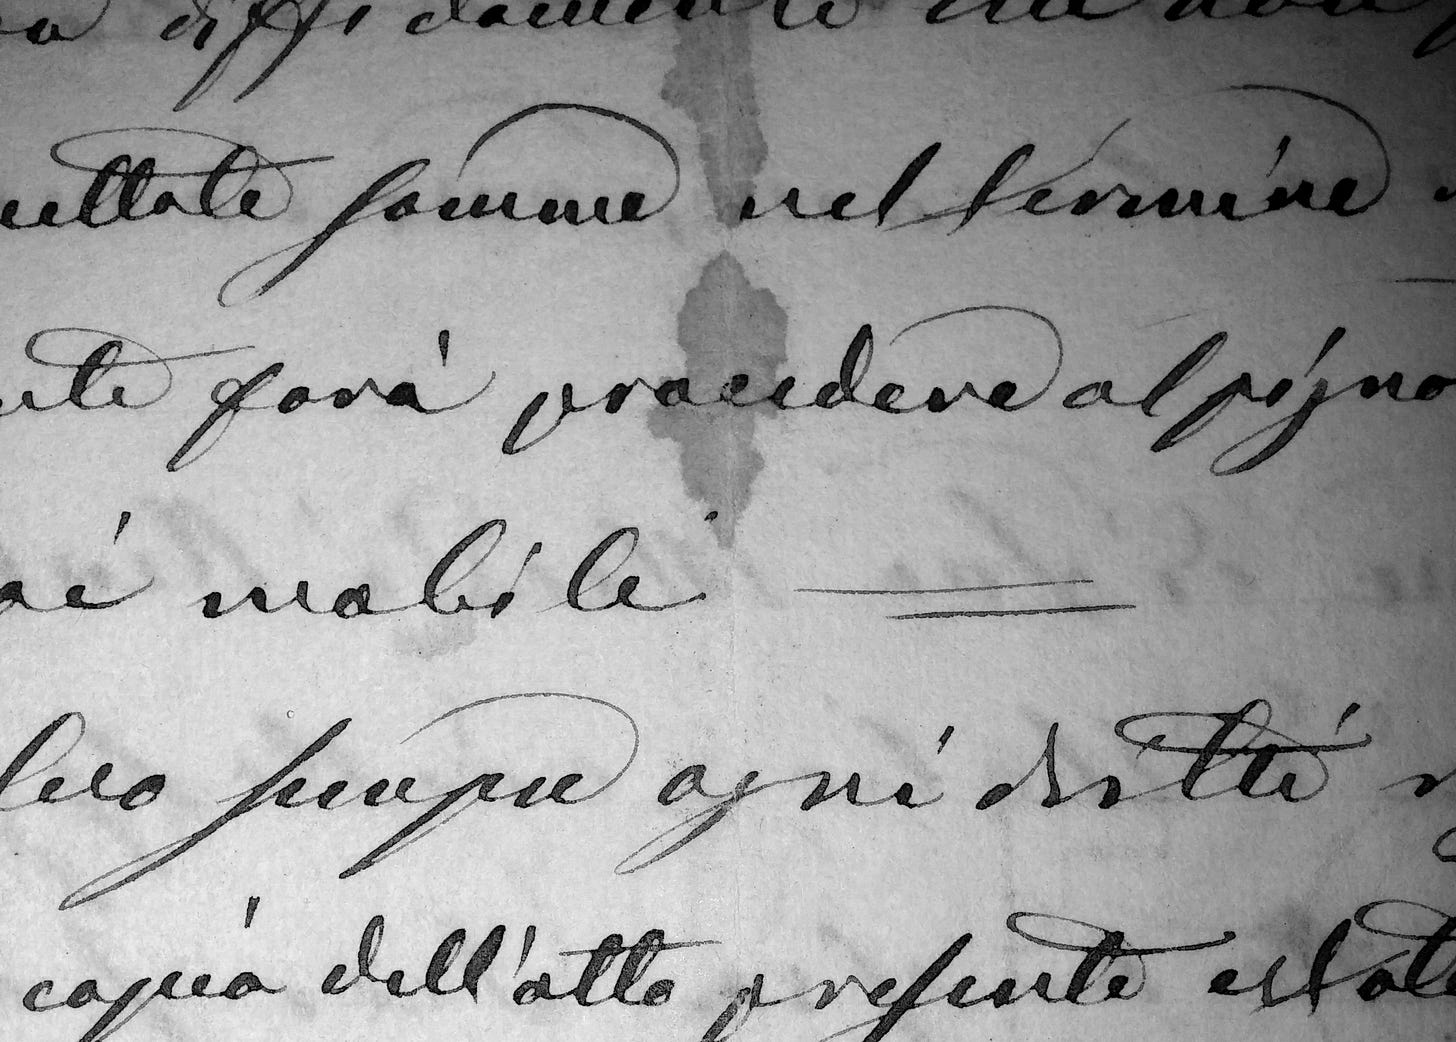 diffidamento che non
nettate somme nel termine
nte farà procedere al pigno
ai mobili
lvo sempre ogni dritto
copia dell'atto presente è stat